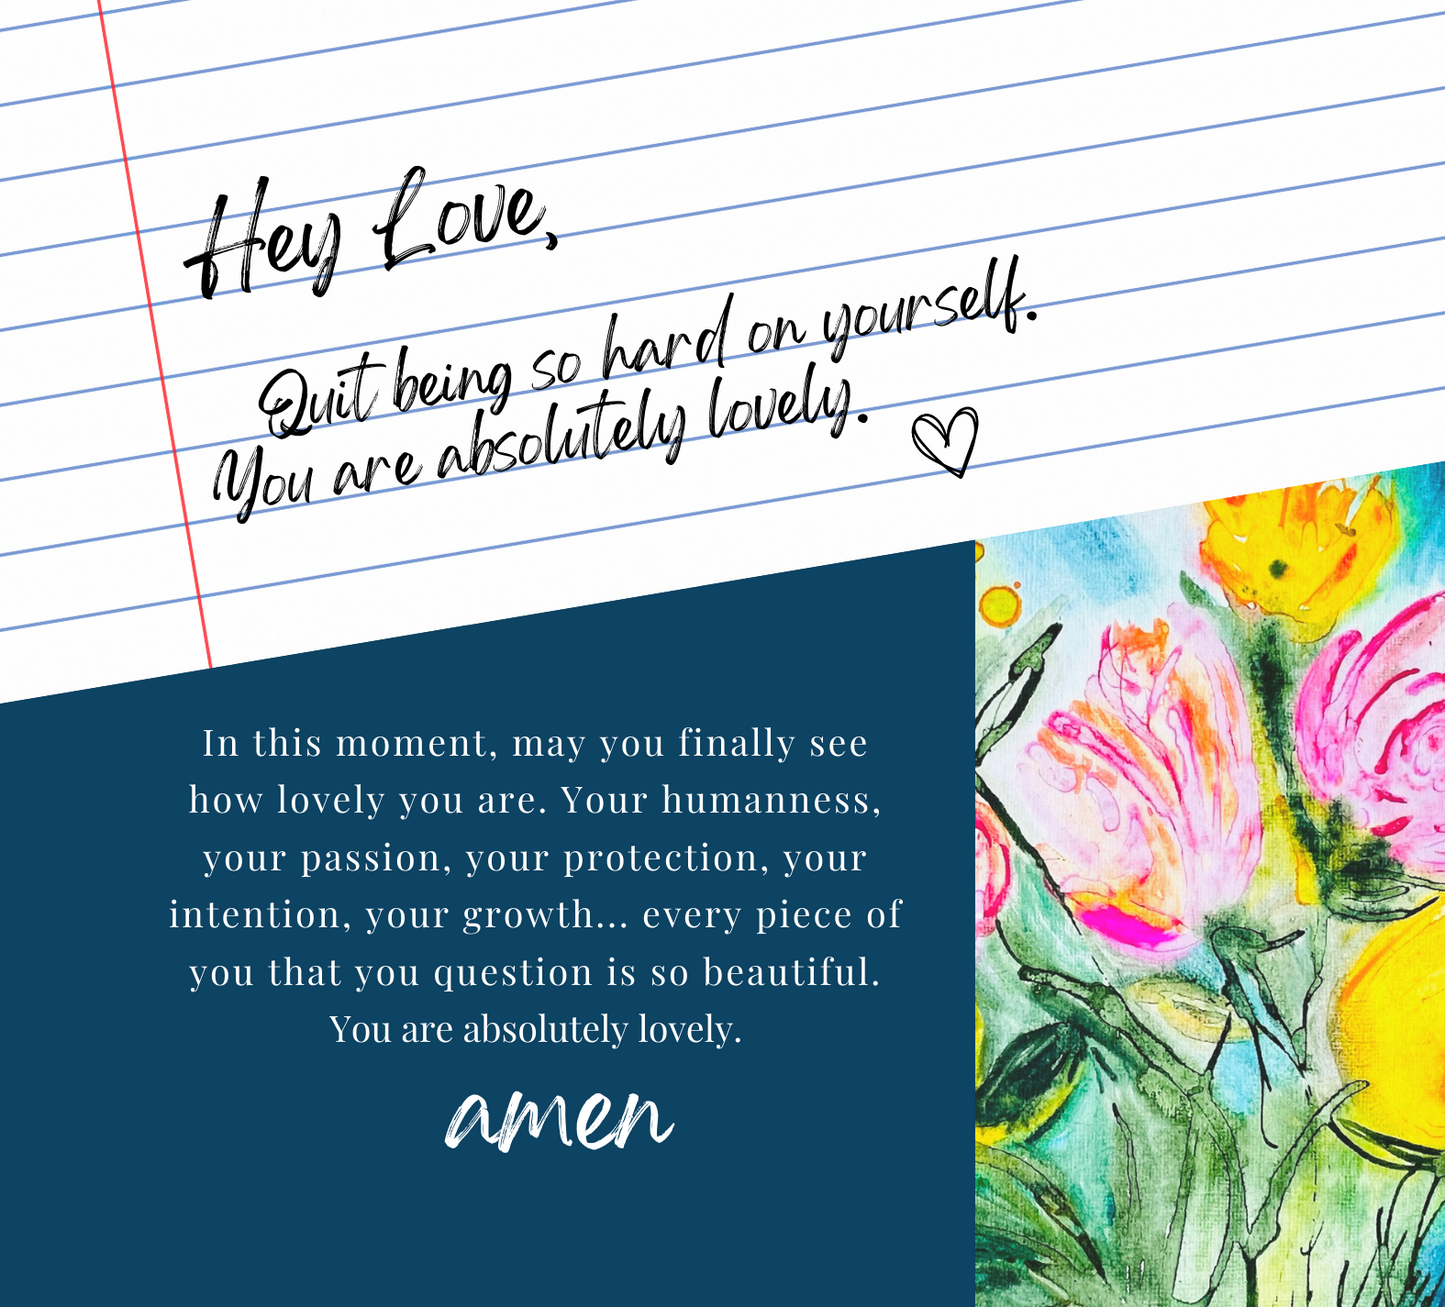 Hey Love,
Quit being so hard on yourself.
You are absolutely lovely.
In this moment, may you finally see
how lovely you are. Your humanness,
your passion, your protection, your
intention, your growth... every piece of
you that you question is so beautiful.
You are absolutely lovely.
amen